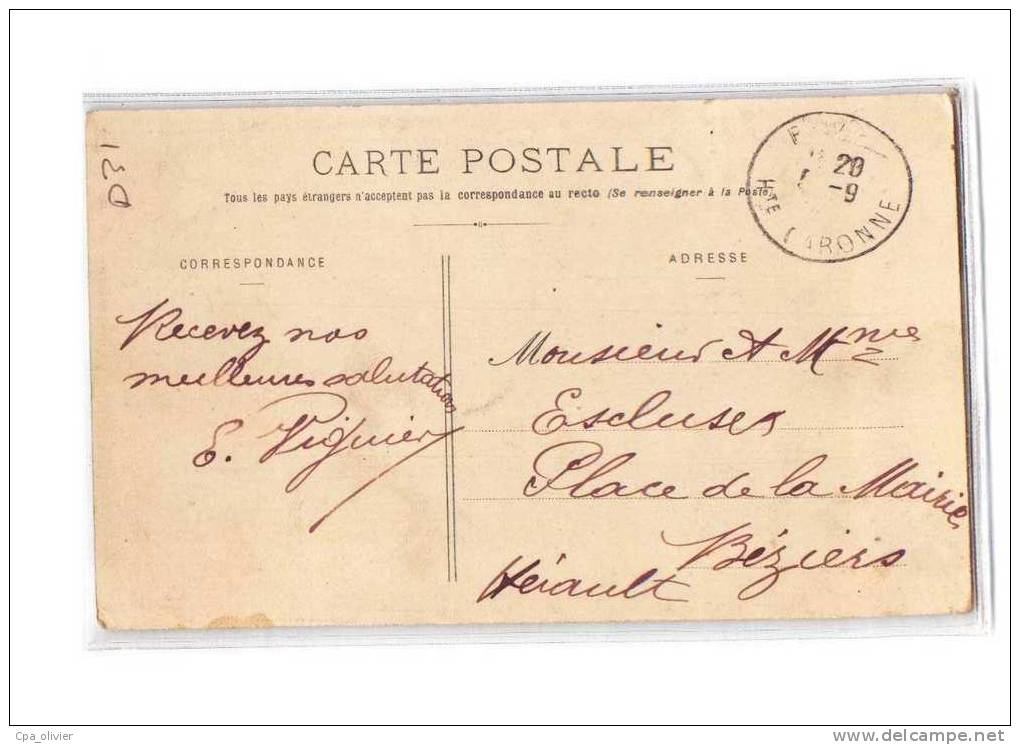 D31
CARTE POSTALE
Tous les pays étrangers n'acceptent pas la correspondance au recto (Se renseigner à la Poste)
20
-9
HTE GARONNE
CORRESPONDANCE
ADRESSE
Recevez nos
meilleures salutations
E. Viguier
Monsieur et Mme
Escluses
Place de la Mairie
Béziers
Hérault
Cpa_olivier
www.delcampe.net